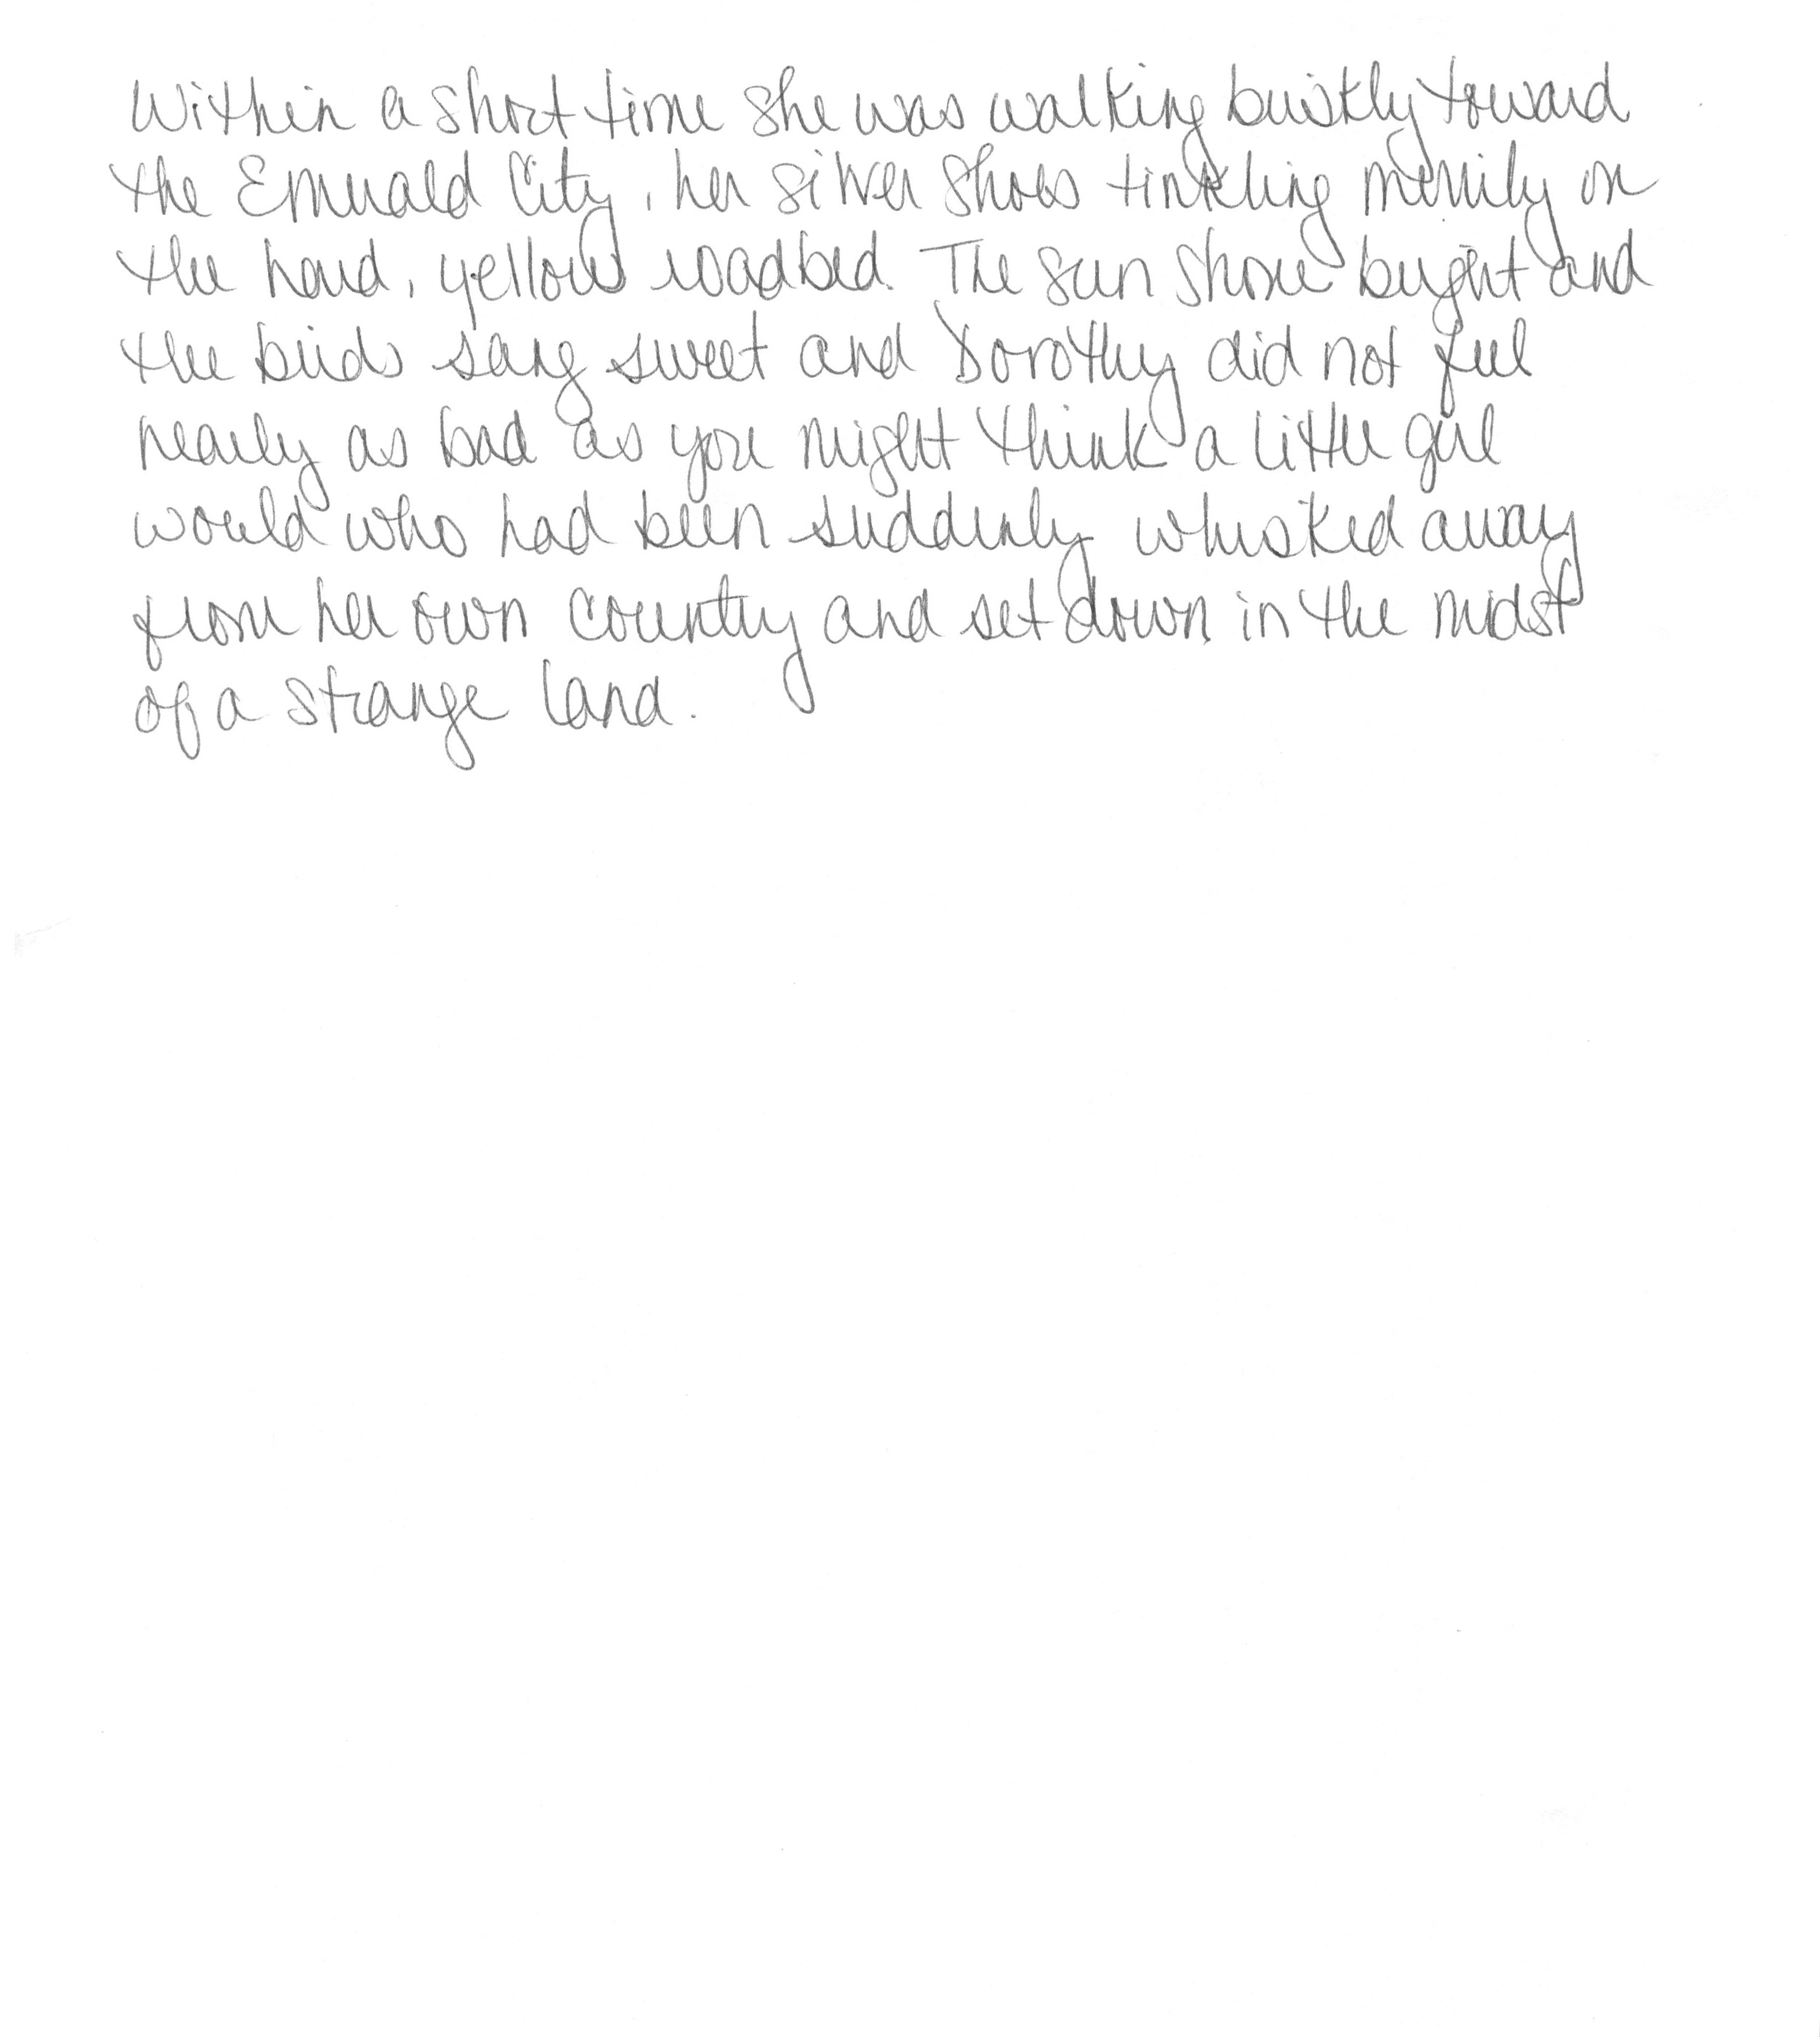 Within a short time she was walking briskly toward
the Emerald City, her silver shoes tinkling merrily on
the hard, yellow roadbed. The sun shone bright and
the birds sang sweet and Dorothy did not feel
nearly as bad as you might think a little girl
would who had been suddenly whisked away
from her own country and set down in the midst
of a strange land.